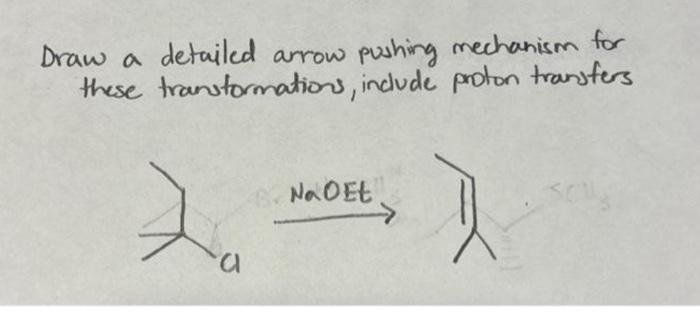 Draw a detailed arrow pushing mechanism for
these transformations, include proton transfers
NaOEt
Cl